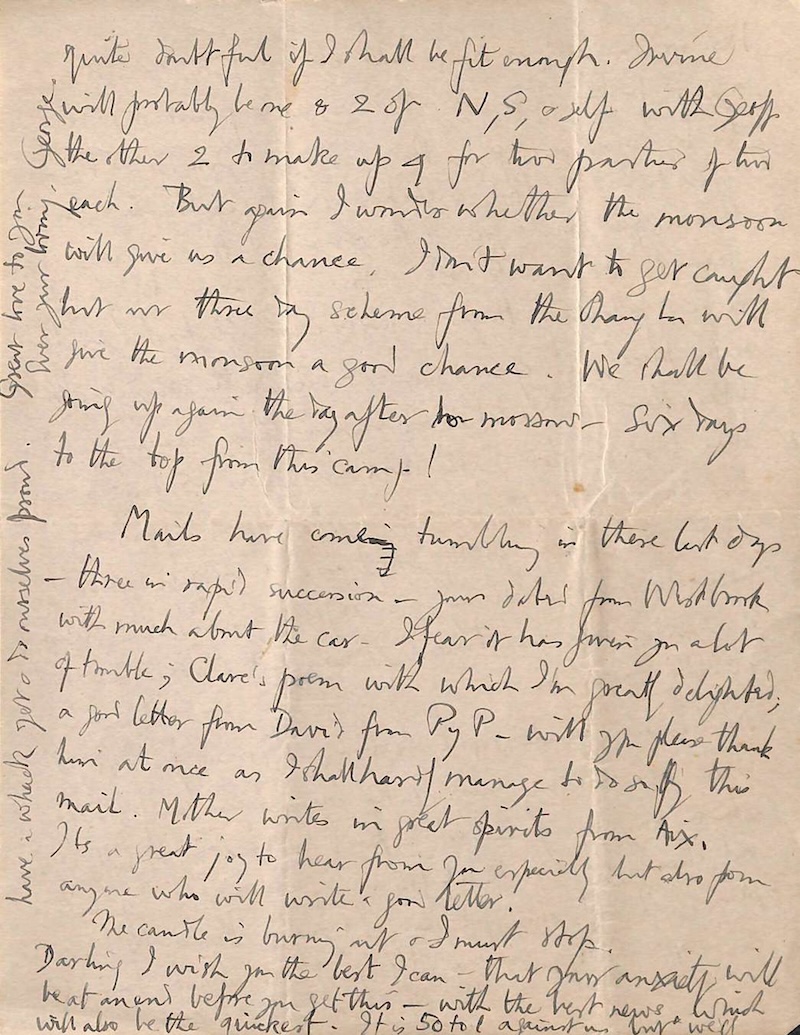 quite doubtful if I shall be fit enough. Irvine
will probably be one & 2 of N, S, & self with Geoff
the other 2 to make up 4 for two parties of two
each. But again I wonder whether the monsoon
will give us a chance. I don't want to get caught
but our three day scheme from the Chang La will
give the monsoon a good chance. We shall be
going up again the day after to morrow – Six days
to the top from this camp!
Mails have come tumbling in these last days
– three in rapid succession – yours dated from Westbrook
with much about the car – I fear it has given you a lot
of trouble; Clare's poem with which I'm greatly delighted;
a good letter from David from PyP – will you please thank
him at once as I shall hardly manage to do so by this
mail. Mother writes in great spirits from Aix.
Its a great joy to hear from you especially but also from
anyone who will write a good letter.
The candle is burning out & I must stop.
Darling I wish you the best I can – that your anxiety will
be at an end before you get this – with the best news. Which
will also be the quickest. It is 50 to 1 against us but we'll
have a whack yet & do ourselves proud. Great love to you.
Ever your loving, George.